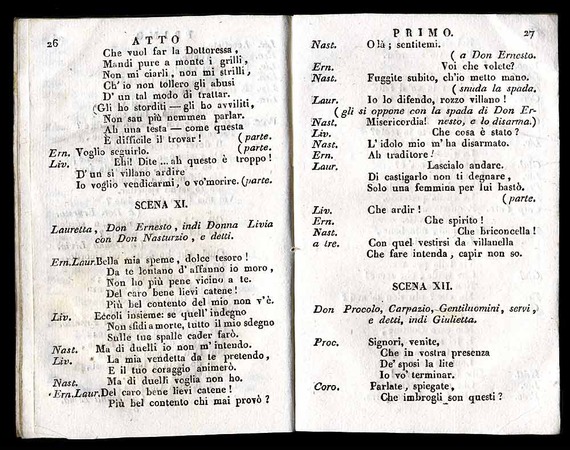 26
ATTO
Che vuol far la Dottoressa,
Mandi pure a monti i grilli,
Non mi ciarli, non mi strilli,
Ch' io non tollero gli abusi
D' un tal modo di trattar.
(Gli ho storditi — gli ho avviliti,
Non san più nemmen parlar.
Ah una testa — come questa
E difficile il trovar! (parte.
Ern. Voglio seguirlo. (parte.
Liv. Ehi! Dite ... ah questo è troppo!
D' un sì villano ardire
Io voglio vendicarmi, o vo'morire. (parte.
SCENA XI.
Lauretta, Don Ernesto, indi Donna Livia
con Don Nasturzio, e detti.
Ern.Laur.Bella mia speme, dolce tesoro!
Da te lontano d'affanno io moro,
Non ho più pene vicino a te.
Del caro bene lievi catene!
Più bel contento del mio non v'è.
Liv. Eccoli insieme: se quell' indegno
Non sfidi a morte, tutto il mio sdegno
Sulle tue spalle cader farò.
Nast. Ma di duelli io non m' intendo.
Liv. La mia vendetta da te pretendo,
E il tuo coraggio animerò.
Nast. Ma di duelli voglia non ho.
Ern.Laur.Del caro bene lievi catene!
Più bel contento chi mai provò?
PRIMO.
27
Nast. Olà; sentitemi.
( a Don Ernesto.
Ern. Voi che volete?
Nast. Fuggite subito, ch'io metto mano.
( snuda la spada.
Laur. Io lo difendo, rozzo villano!
( gli si oppone con la spada di Don Er-
Nast. Misericordia! nesto, e lo disarma.)
Liv. Che cosa è stato?
Nast. L' idolo mio m' ha disarmato.
Ern. Ah traditore!
Laur. Lascialo andare.
Di castigarlo non ti degnare,
Solo una femmina per lui bastò.
( parte.
Liv. Che ardir!
Ern. Che spirito!
Nast. Che briconcella!
a tre. Con quel vestirsi da villanella
Che fare intenda, capir non so.
SCENA XII.
Don Procolo, Carpazio, Gentiluomini, servi,
e detti, indi Giulietta.
Proc. Signori, venite,
Che in vostra presenza
De' sposi la lite
Io vo' terminar.
Coro. Parlate, spiegate,
Che imbrogli son questi?